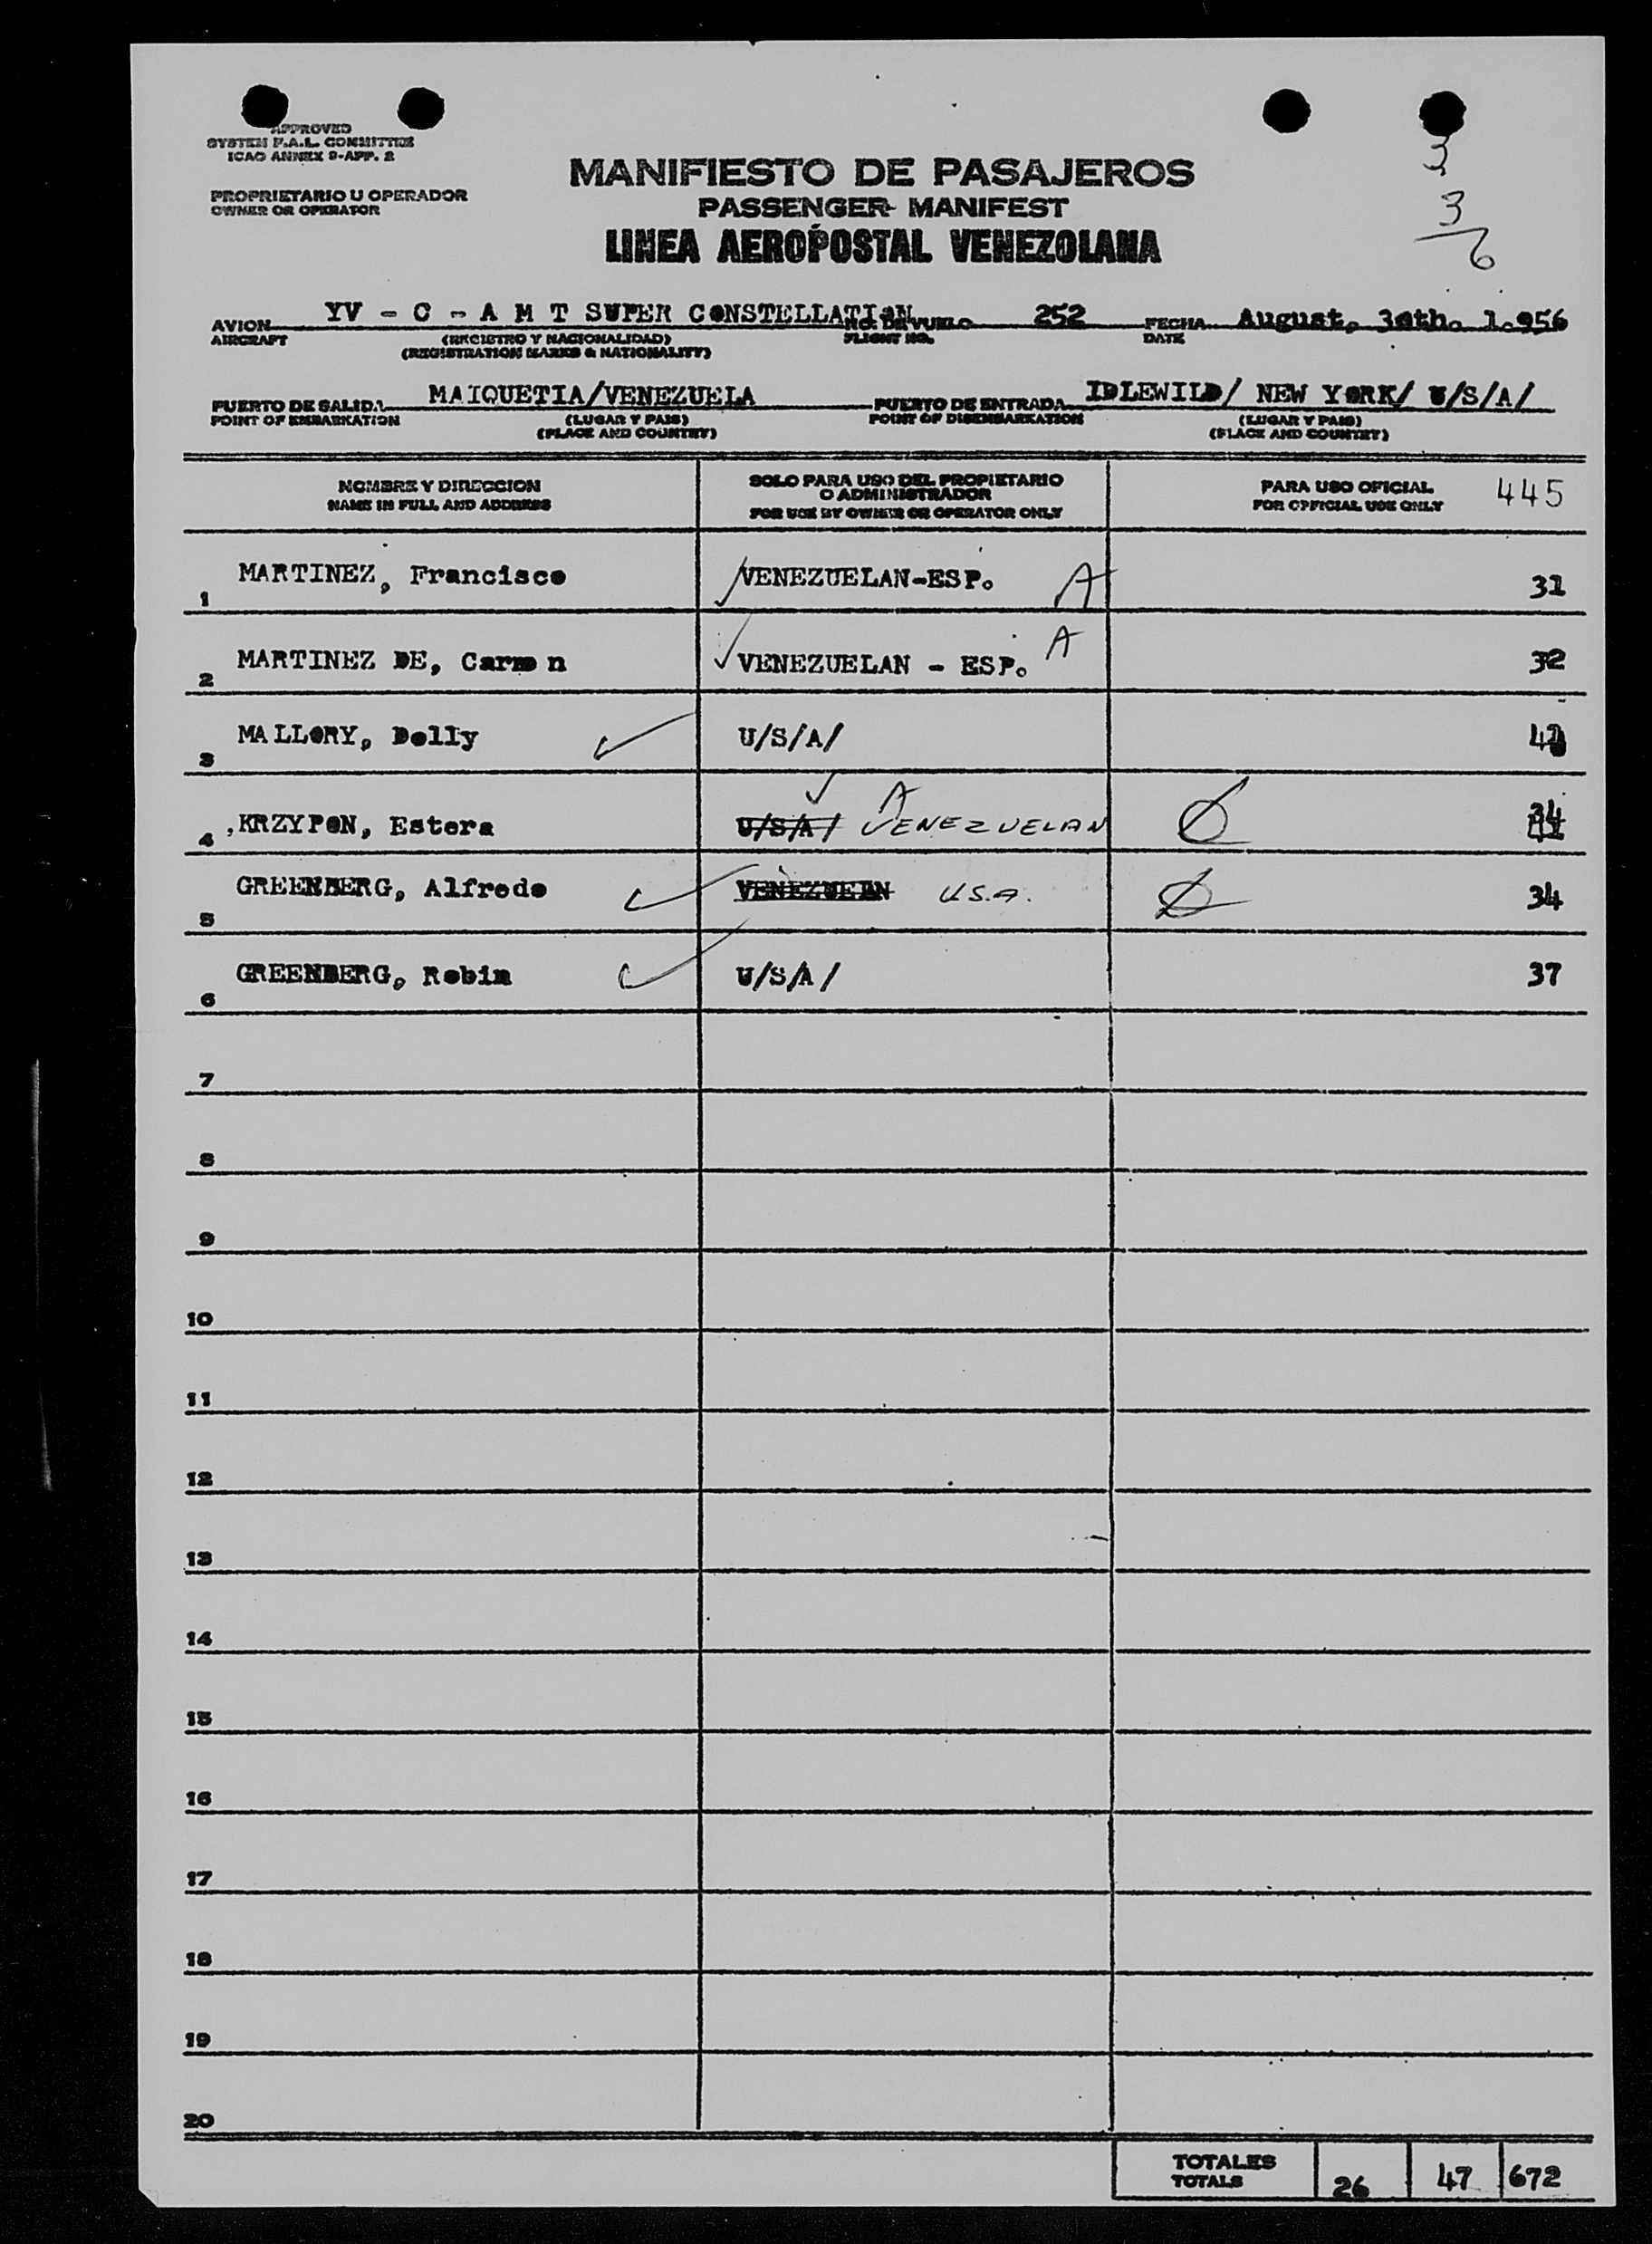 APPROVED
SYSTEM F.A.L. COMMITTEE
ICAO ANNEX 9-APP. 2
PROPRIETARIO U OPERADOR
OWNER OR OPERATOR
MANIFIESTO DE PASAJEROS
PASSENGER MANIFEST
LINEA AEROPOSTAL VENEZOLANA
3
3
6
AVION YV - C - A M T SUPER CONSTELLATION NO. DE VUELO 252 FECHA August, 30th. 1.956
AIRCRAFT (REGISTRO Y NACIONALIDAD) FLIGHT NO. DATE
(REGISTRATION MARKS & NATIONALITY)
PUERTO DE SALIDA MAIQUETIA/VENEZUELA PUERTO DE ENTRADA IDLEWILD/ NEW YORK/ U/S/A/
POINT OF EMBARKATION (LUGAR Y PAIS) POINT OF DISEMBARKATION (LUGAR Y PAIS)
(PLACE AND COUNTRY) (PLACE AND COUNTRY)
NOMBRE Y DIRECCION SOLO PARA USO DEL PROPIETARIO O ADMINISTRADOR PARA USO OFICIAL 445
NAME IN FULL AND ADDRESS FOR USE BY OWNER OR OPERATOR ONLY FOR OFFICIAL USE ONLY
1 MARTINEZ, Francisco VENEZUELAN-ESP. A 31
2 MARTINEZ DE, Carmen VENEZUELAN - ESP. A 32
3 MALLORY, Dolly U/S/A/
4 ,KRZYPON, Estera U/S/A/ VENEZUELAN A 34
5 GREENBERG, Alfredo VENEZUELAN U.S.A. 34
6 GREENBERG, Robin U/S/A/ 37
7
8
9
10
11
12
13
14
15
16
17
18
19
20
TOTALES 26 47 672
TOTALS